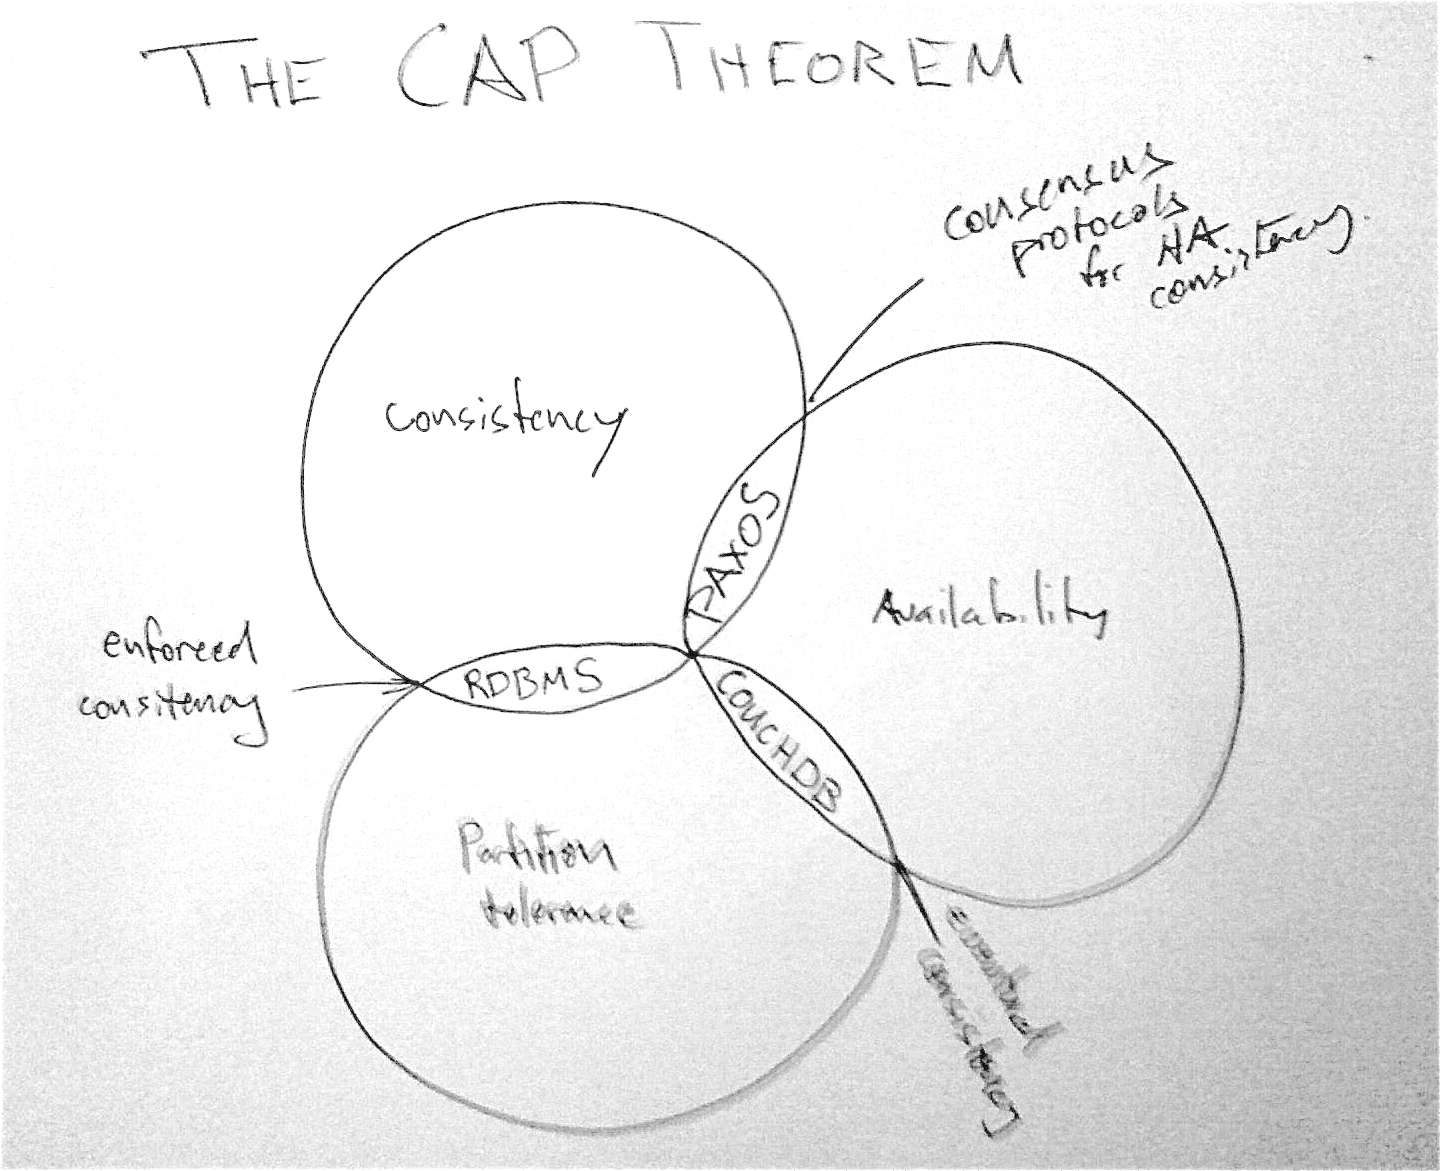 THE CAP THEOREM
consensus
protocols
for HA
consistency.
Consistency
PAXOS
Availability
enforced
consitency
RDBMS
COUCHDB
Partition
tolerance
eventual
consistency